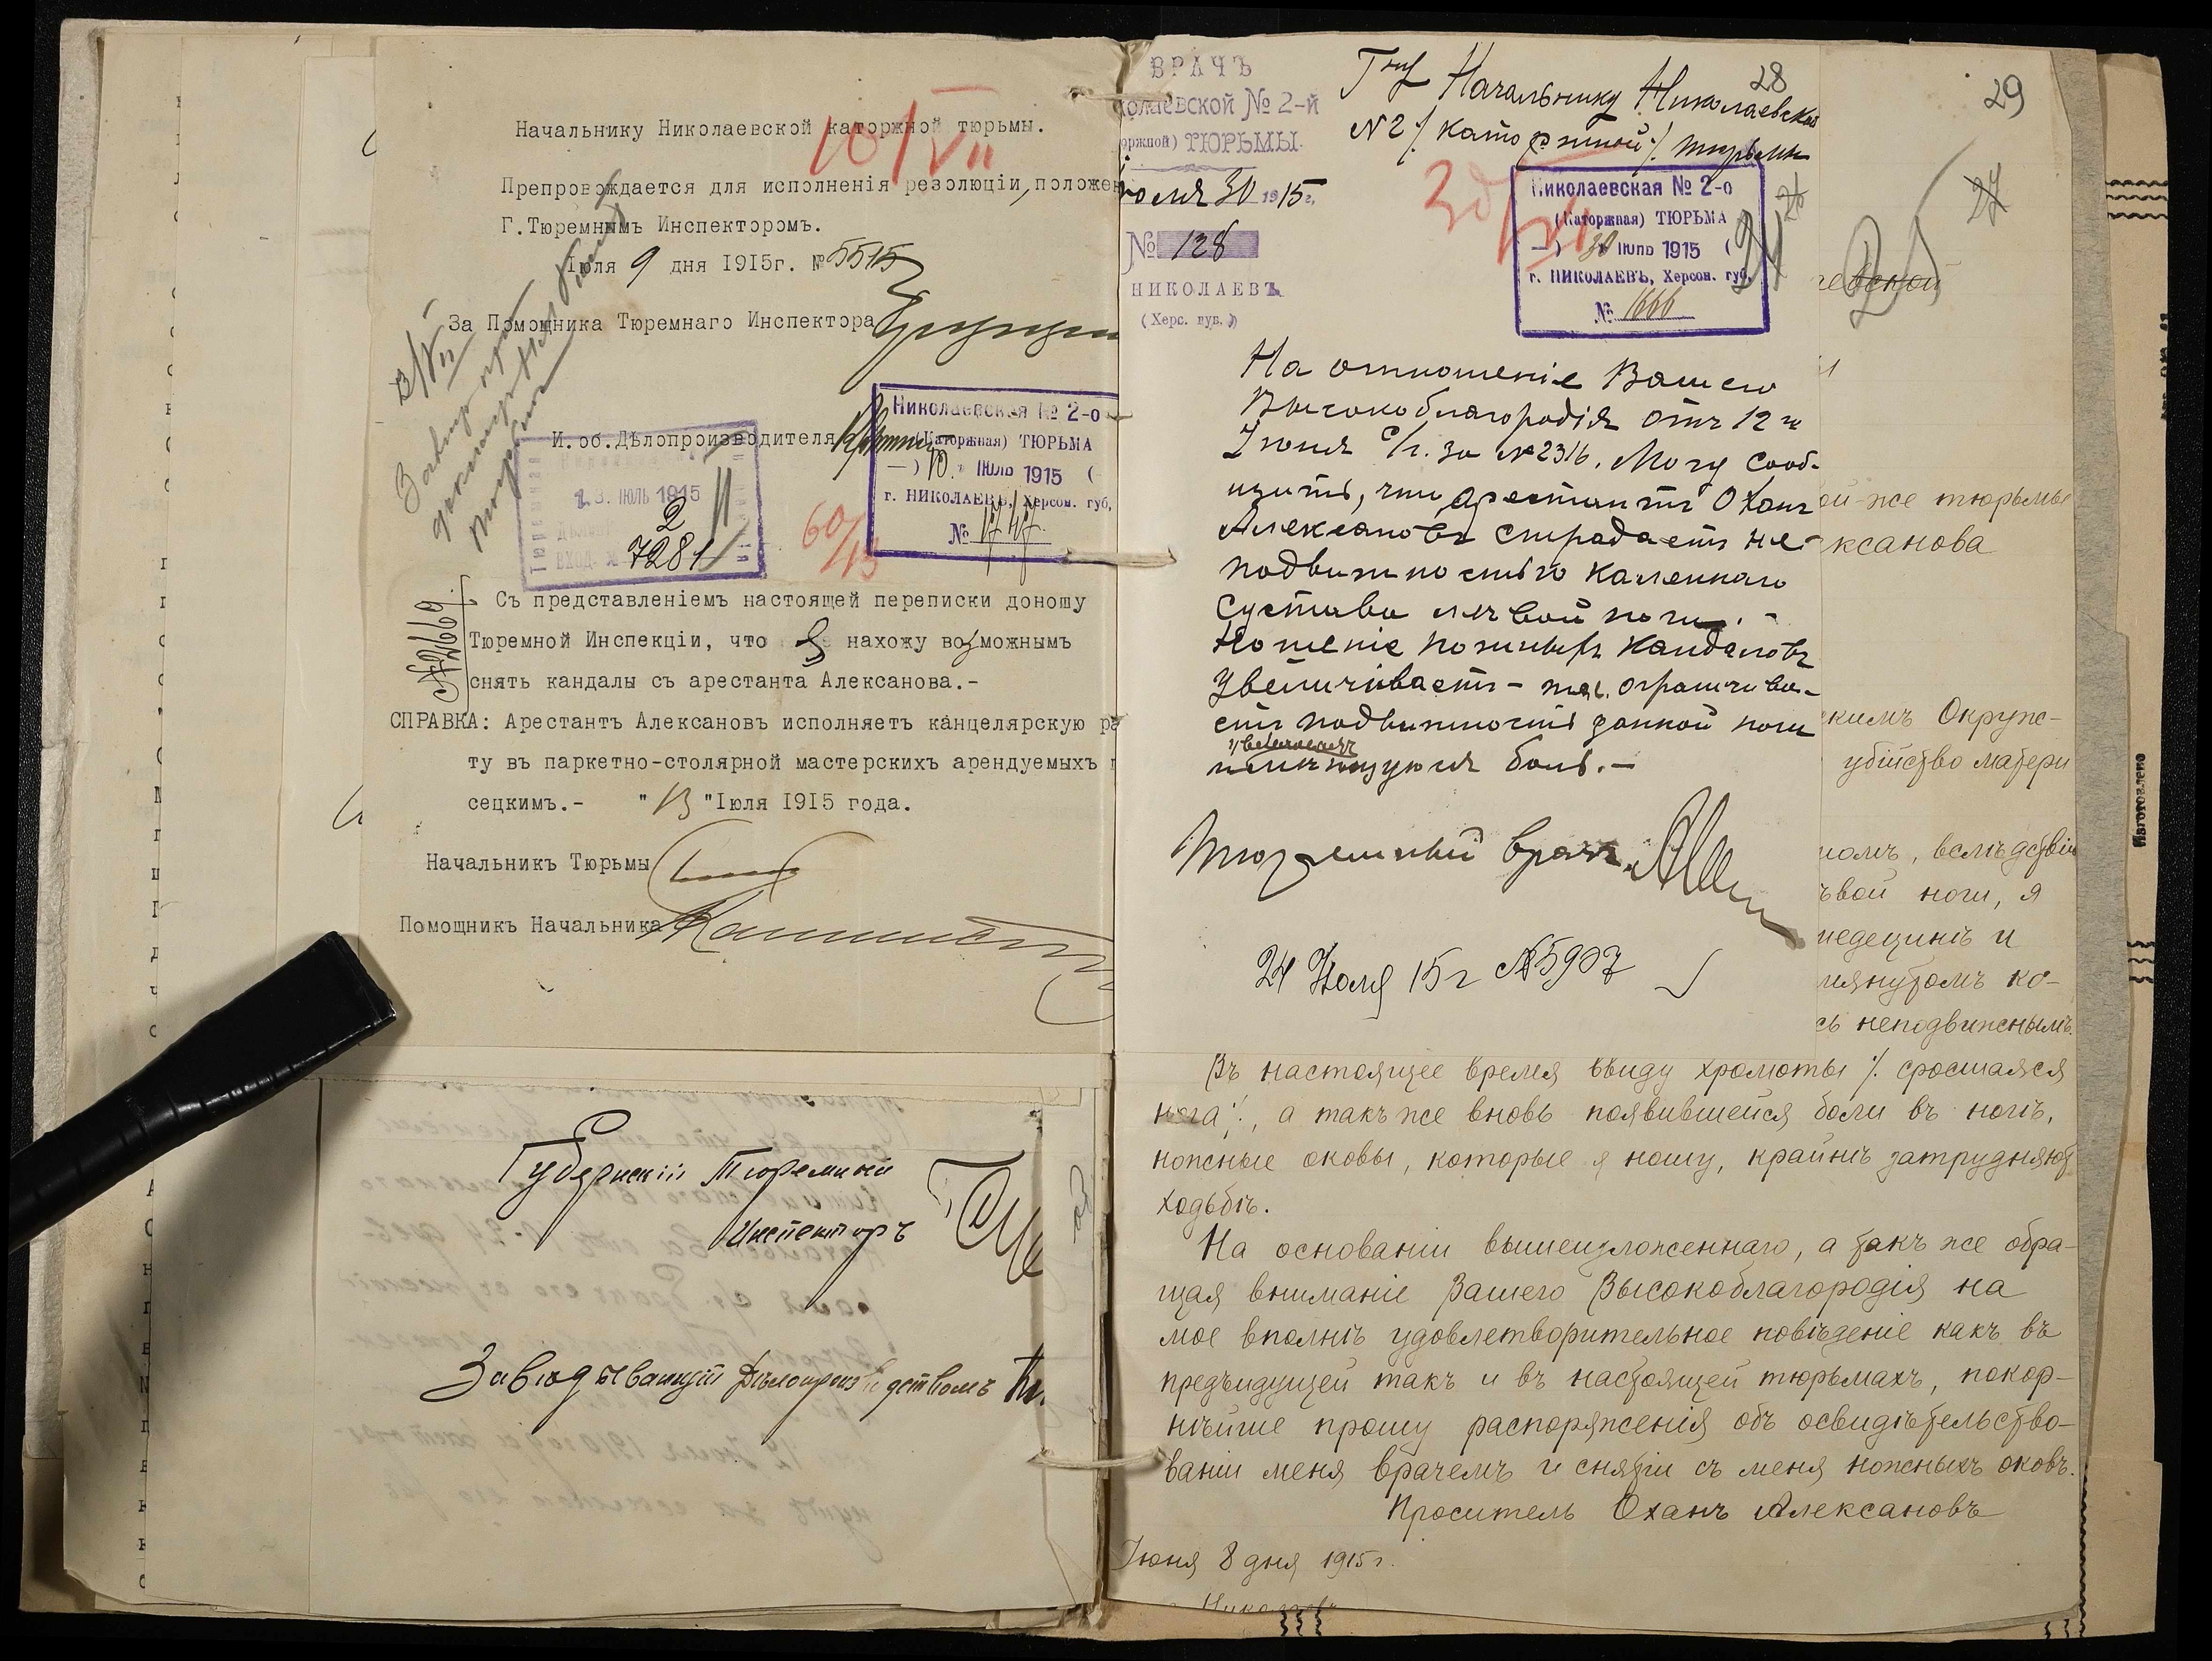 Начальнику Николаевской каторжной тюрьмы.
10/VII
Препровождается для исполненія резолюціи, положен
Г.Тюремнымъ Инспекторомъ.
Іюля 9 дня 1915г. № 5515
За Помощника Тюремнаго Инспектора
13/VII
И.об.Дѣлопроизводителя
Николаевская № 2-о
(Каторжная) ТЮРЬМА
10 ІЮЛЬ 1915
г. НИКОЛАЕВЪ, Херсон. губ.
№ 1747
13. ІЮЛЬ 1915
2
ВХОД. № 7281
60/15
№2669
Съ представленіемъ настоящей переписки доношу
Тюремной Инспекціи, что нахожу возможнымъ
снять кандалы съ арестанта Алексанова.-
СПРАВКА: Арестантъ Алексановъ исполняетъ канцелярскую ра
ту въ паркетно-столярной мастерскихъ арендуемыхъ
сецкимъ.- "13"Іюля 1915 года.
Начальникъ Тюрьмы
Помощникъ Начальника
Губернскій Тюремный
Инспекторъ
Завѣдывающій Дѣлопроизводствомъ
ВРАЧЪ
колаевской № 2-й
оржной) ТЮРЬМЫ.
30 1915г.
№ 128
НИКОЛАЕВЪ
(Херс. губ.)
28
Начальнику Николаевской
№2 ⁒ каторжной ⁒ тюрьмы
Николаевская № 2-о
(Каторжная) ТЮРЬМА
30 1915
г. НИКОЛАЕВЪ, Херсон. губ.
№ 1666
На отношеніе Вашего
Высокоблагородія отъ 12 го
Іюня с/г. за №2316. Могу сооб-
щить, что арестантъ Оханъ
Алексановъ страдаетъ не-
подвижностью колѣннаго
сустава лѣвой ноги. -
Ношеніе ножныхъ кандаловъ
увеличиваетъ - огранichива-
етъ подвижность данной ноги
боль.-
Тюремный врачъ
24 Іюля 15г №5907
29
27
евской
ой-же тюрьмы
ксанова
скимъ Окруж-
убійство матери
номъ, вслѣдствіи
ѣвой ноги, я
медецинѣ и
мянутомъ ко-
сь неподвижнымъ.
Въ настоящее время ввиду хромоты ⁒ сросшаяся
нога ⁒, а такъ же вновь появившейся боли въ ногѣ,
ножные оковы, которые я ношу, крайнѣ затрудняют
ходьбѣ.
На основаніи вышеизложеннаго, а такъ же обра-
щая вниманіе Вашего Высокоблагородія на
мое вполнѣ удовлетворительное повѣденіе какъ въ
предъидущей такъ и въ настоящей тюрьмахъ, покор-
нѣйше прошу распоряженія объ освидѣтельство-
ваніи меня врачемъ и снятіи съ меня ножныхъ оковъ.
Проситель Оханъ Алексановъ
Іюня 8 дня 1915г.
Изготовлено